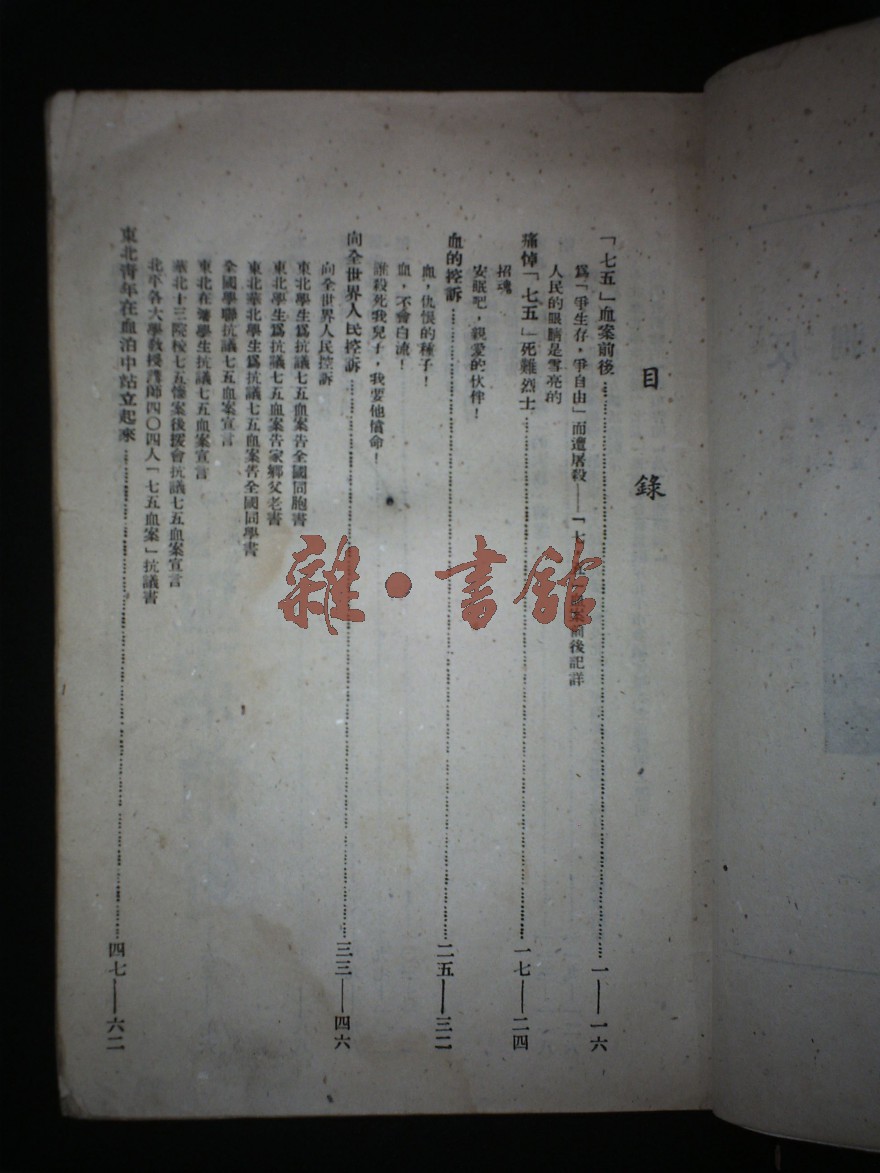 目錄
「七五」血案前後……一——一六
爲「爭生存，爭自由」而遭屠殺——「七五」血案前後記詳
人民的眼睛是雪亮的
痛悼「七五」死難烈士……一七——二四
招魂
安眠吧，親愛的伙伴！
血的控訴……二五——三二
血，仇恨的種子！
血，不會白流！
誰殺死我兒子，我要他償命！
向全世界人民控訴……三三——四六
向全世界人民控訴
東北學生爲抗議七五血案告全國同胞書
東北學生爲抗議七五血案告家鄉父老書
東北華北學生爲抗議七五血案告全國同學書
全國學聯抗議七五血案宣言
東北在瀋學生抗議七五血案宣言
華北十三院校七五慘案後援會抗議七五血案宣言
北平各大學教授講師四〇四人「七五血案」抗議書
東北青年在血泊中站立起來……四七——六二
雜·書舘